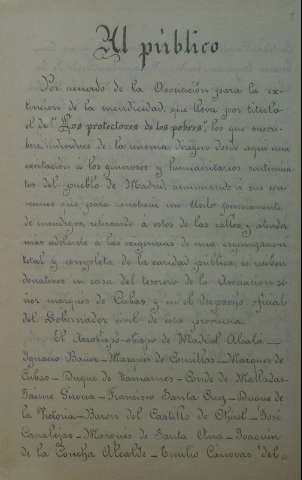 Al público
Por acuerdo de la Asociación para la ex-
tinción de la mendicidad, que lleva por título
el de "Los protectores de los pobres", los que suscri-
ben, individuos de la misma, dirigen desde aquí una
excitación á los generosos y humanitarios sentimien-
tos del pueblo de Madrid, animando á sus con-
vecinos que para construir un Asilo
de mendigos, retirando á estos de las calles, y atender
más adelante á las exigencias de una organización
total y completa de la caridad pública, se reciben
donativos en casa del tesorero de la Asociación se-
ñor marqués de Cubas y en el despacho oficial
del Gobernador civil de esta provincia.
El Arzobispo-obispo de Madrid Alcalá -
Ignacio Bäuer - Marqués de Comillas - Marqués de
Cubas - Duque de Tamames - Conde de Malladas -
Jaime Girona - Francisco Santa Cruz - Duque de
la Victoria - Baron del Castillo de Chirel - José
Canalejas - Marqués de Santa Ana - Joaquin
de la Concha Alcalde - Emilio Cánovas del